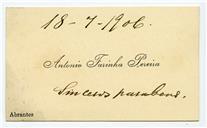 18-7-1906.
Antonio Farinha Pereira
Sinceros parabens.
Abrantes